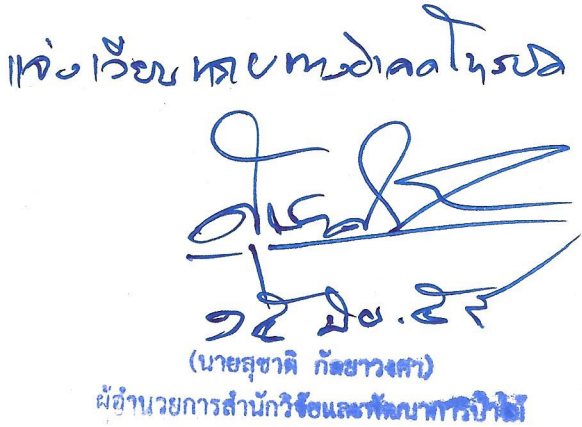 แจ้งเวียนทราบทางอิเลคโทรนิค
๑๕ มิย. ๕๙
(นายสุชาติ กัลยาวงศา)
ผู้อำนวยการสำนักวิจัยและพัฒนาการป่าไม้